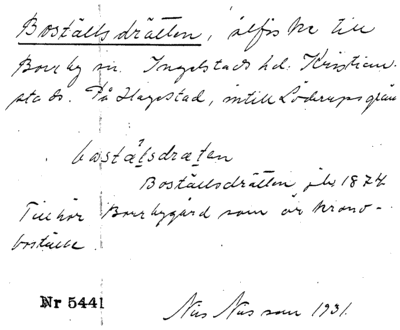 Boställsdrätten, ålfiske till
Borrby sn. Ingelstads hd. Kristian-
stads. På Hagestad, intill Löderupsgrän
bostälsdräten
Boställsdrätten åbr 1874
Tillhör Borrbygård som är krono-
boställe.
Nr 5441
Nils Nilsson 1931.